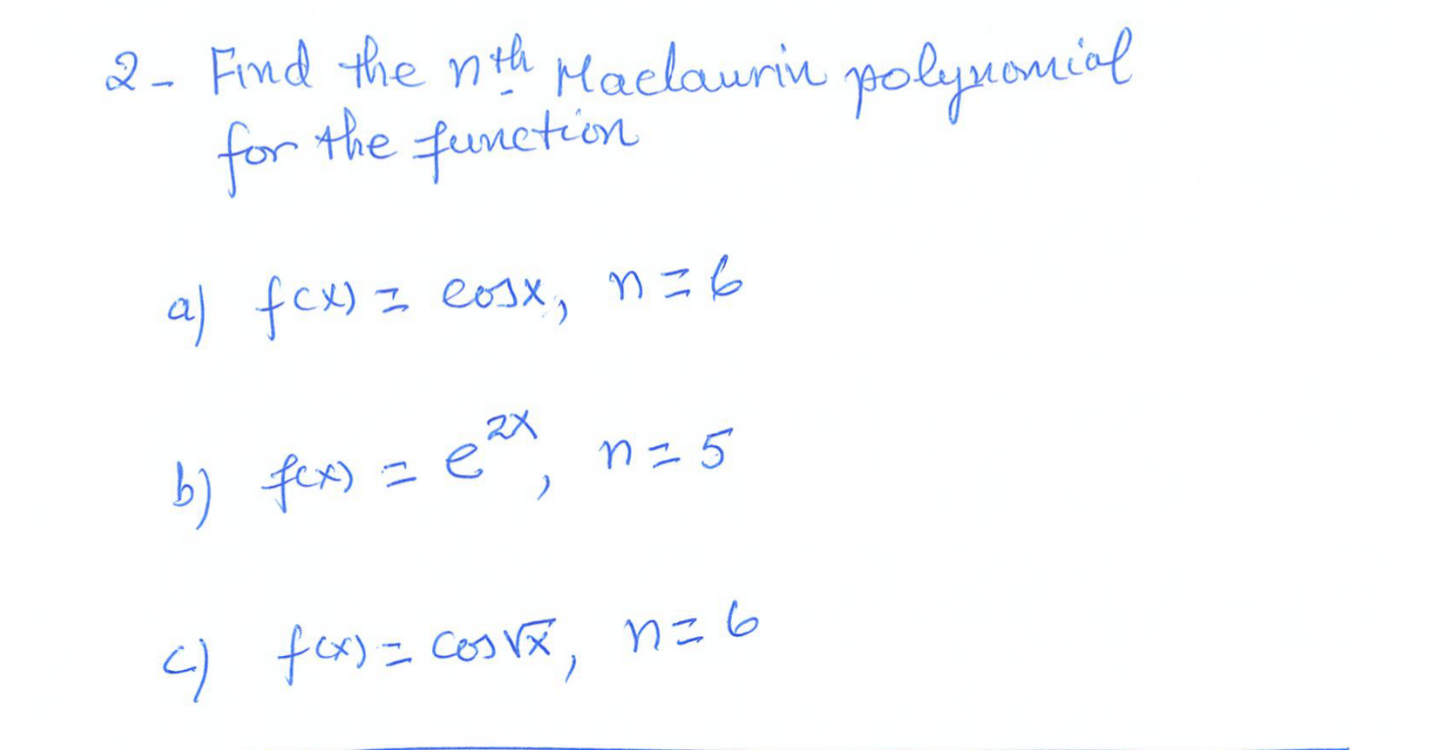 2- Find the nth Maclaurin polynomial
for the function
a) f(x) = cosx, n=6
b) f(x) = e^2x, n=5
c) f(x) = cos√x, n=6